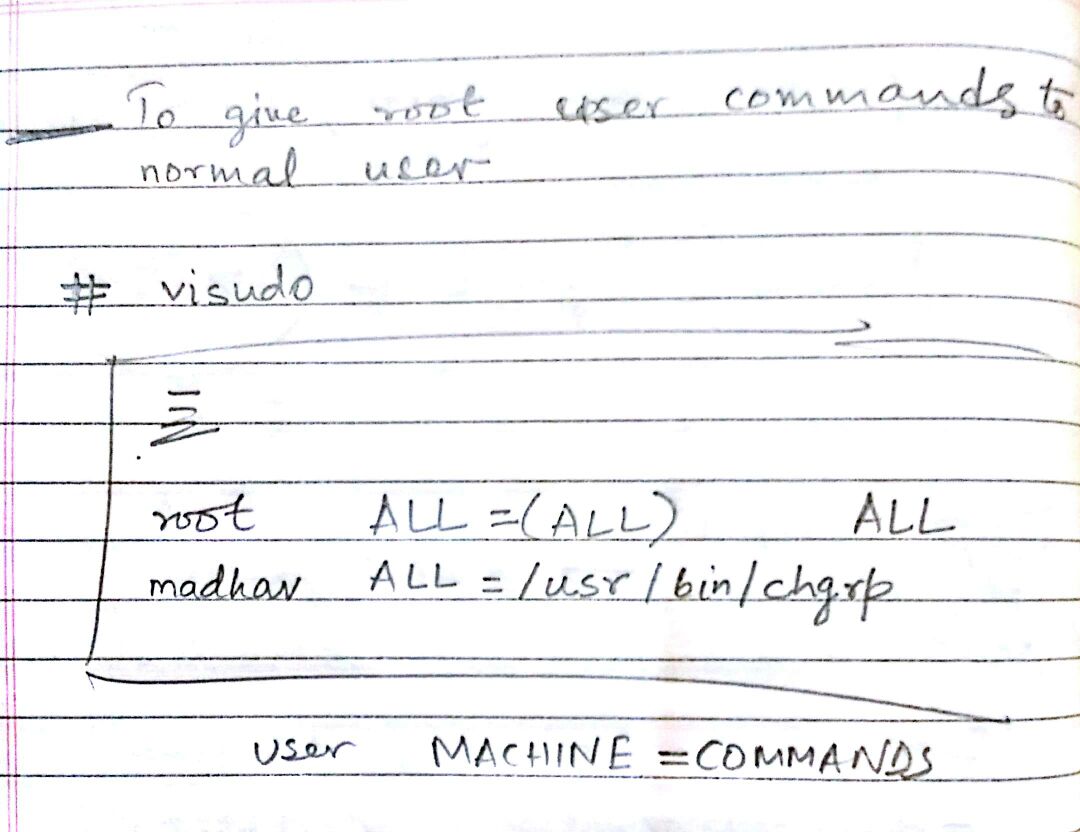 To give root user commands to
normal user
# visudo
root ALL =(ALL) ALL
madhav ALL = /usr/bin/chgrp
user MACHINE = COMMANDS